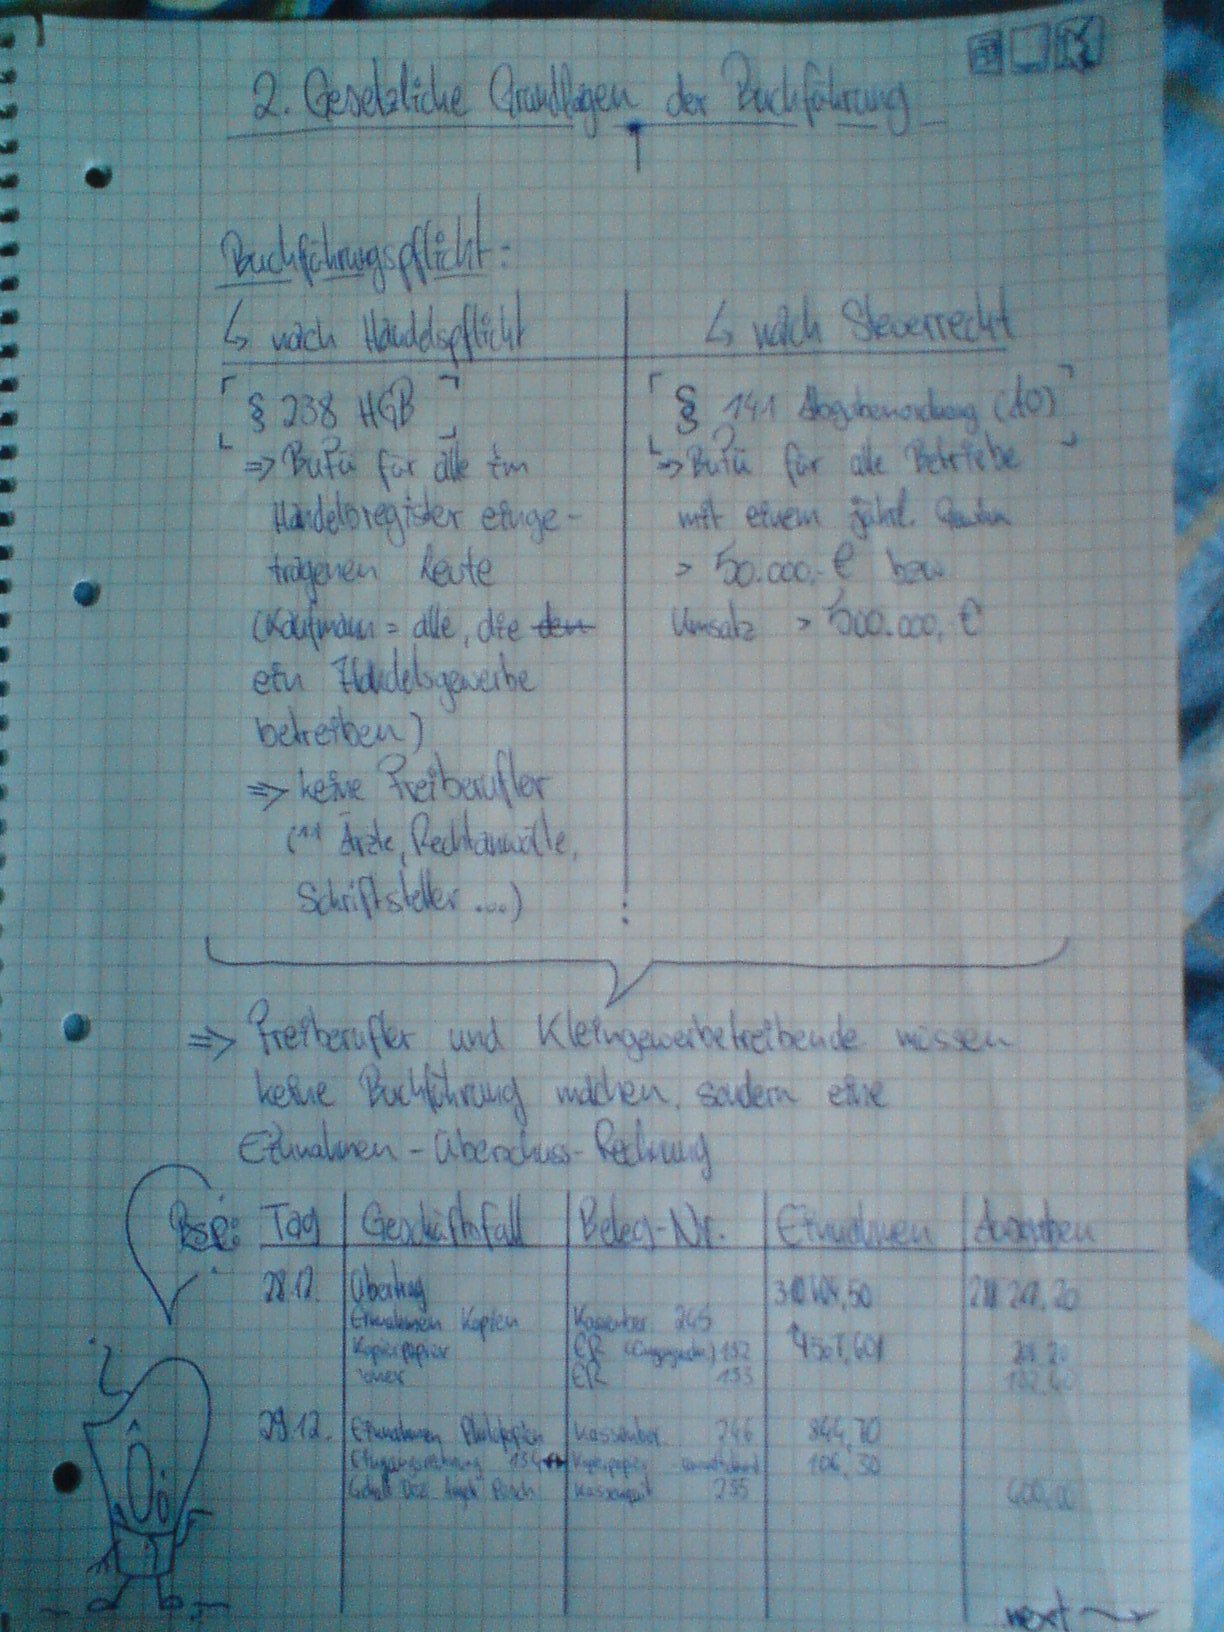 2. Gesetzliche Grundlagen der Buchführung
Buchführungspflicht:
↳ nach Handelspflicht
§ 238 HGB
⇒ BuFü für alle im
Handelsregister einge-
tragenen Leute
(Kaufmann = alle, die den
ein Handelsgewerbe
betreiben)
⇒ keine Freiberufler
Ärzte, Rechtanwälte,
Schriftsteller ...)
↳ nach Steuerrecht
§ 141 Abgabenordnung (AO)
⇒ BuFü für alle Betriebe
mit einem jährl. Gewinn
> 50.000,- € bzw.
Umsatz > 500.000,- €
⇒ Freiberufler und Kleingewerbetreibende müssen
keine Buchführung machen, sondern eine
Einnahmen-Überschuss-Rechnung
Bsp.: Tag Geschäftsfall Beleg-Nr. Einnahmen Ausgaben
28.12. Übertrag
Einnahmen Kopien Kassenber. 245
Kopierpapier ER 152
Toner ER 153
29.12. Einnahmen Kassenber. 246 844,70
Eingangsrechnung 154 Kopierpapier 106,50
Gehalt 255 600,00
next